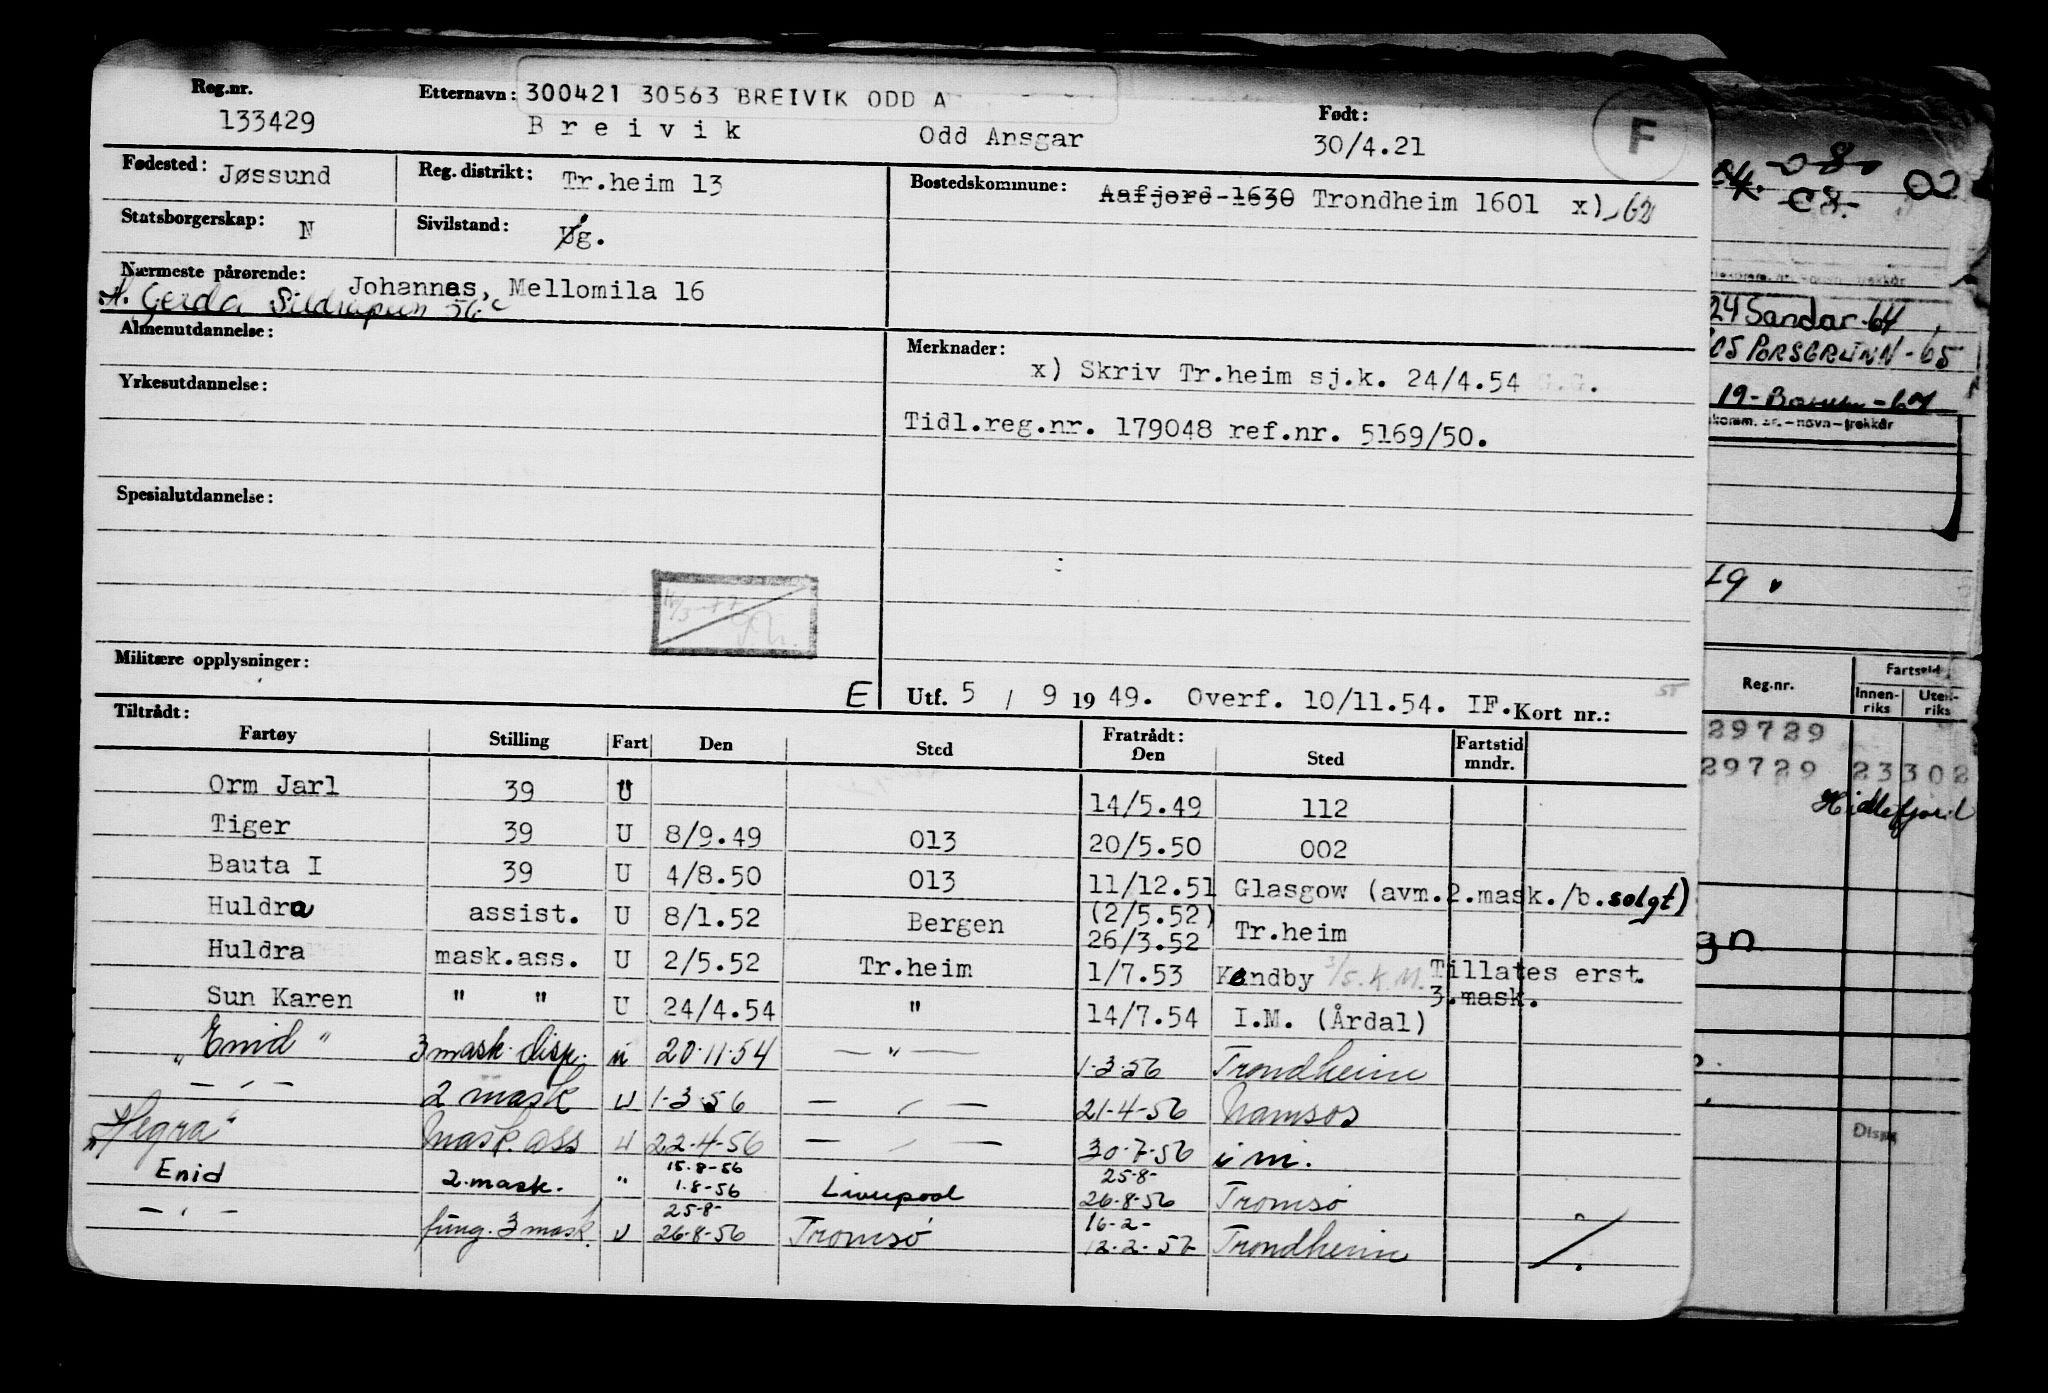 Reg.nr. 133429
Etternavn: 300421 30563 BREIVIK ODD A
Breivik Odd Ansgar
Født: 30/4.21
F
Fødested: Jøssund
Reg. distrikt: Tr.heim 13
Bostedskommune: Aafjord-1630 Trondheim 1601 x) -62
Statsborgerskap: N
Sivilstand: Ug.
Nærmeste pårørende: Johannes, Mellomila 16
Gerda 56
Almenutdannelse:
Merknader:
x) Skriv Tr.heim sj.k. 24/4.54 G.G.
Yrkesutdannelse:
Tidl.reg.nr. 179048 ref.nr. 5169/50.
Spesialutdannelse:
Militære opplysninger:
E Utf. 5 / 9 19 49. Overf. 10/11.54. IF. Kort nr.:
Tiltrådt: Fratrådt:
Fartøy Stilling Fart Den Sted Den Sted Fartstid mndr.
Orm Jarl 39 U 14/5.49 112
Tiger 39 U 8/9.49 013 20/5.50 002
Bauta I 39 U 4/8.50 013 11/12.51 Glasgow (avm.2.mask./b.solgt)
Huldra assist. U 8/1.52 Bergen (2/5.52) 26/3.52 Tr.heim
Huldra mask.ass. U 2/5.52 Tr.heim 1/7.53 Kandby 3/5.K.M. Tillates erst. 3.mask.
Sun Karen " " U 24/4.54 " 14/7.54 I.M. (Årdal)
"Enid" 3 mask. disp. u 20.11.54 — " — 1-3-56 Trondheim
— " — 2 mask U 1-3-56 — " — 21-4-56 Namsos
"Hegra" Mask. ass U 22-4-56 — " — 30-7-56 i m.
Enid 2. mask. " 15-8-56 1-8-56 Liverpool 25-8- 26-8-56 Tromsø
— " — fung. 3 mask. U 25-8- 26-8-56 Tromsø 16-2- 12-2-57 Trondheim
08
C8.
02
24 Sandar-64
PORSGRUNN-65
komm. nr.-navn-trekkår
19.
Reg.nr. Fartstid Innenriks Utenriks
29729
29729 23302
gn
Disp